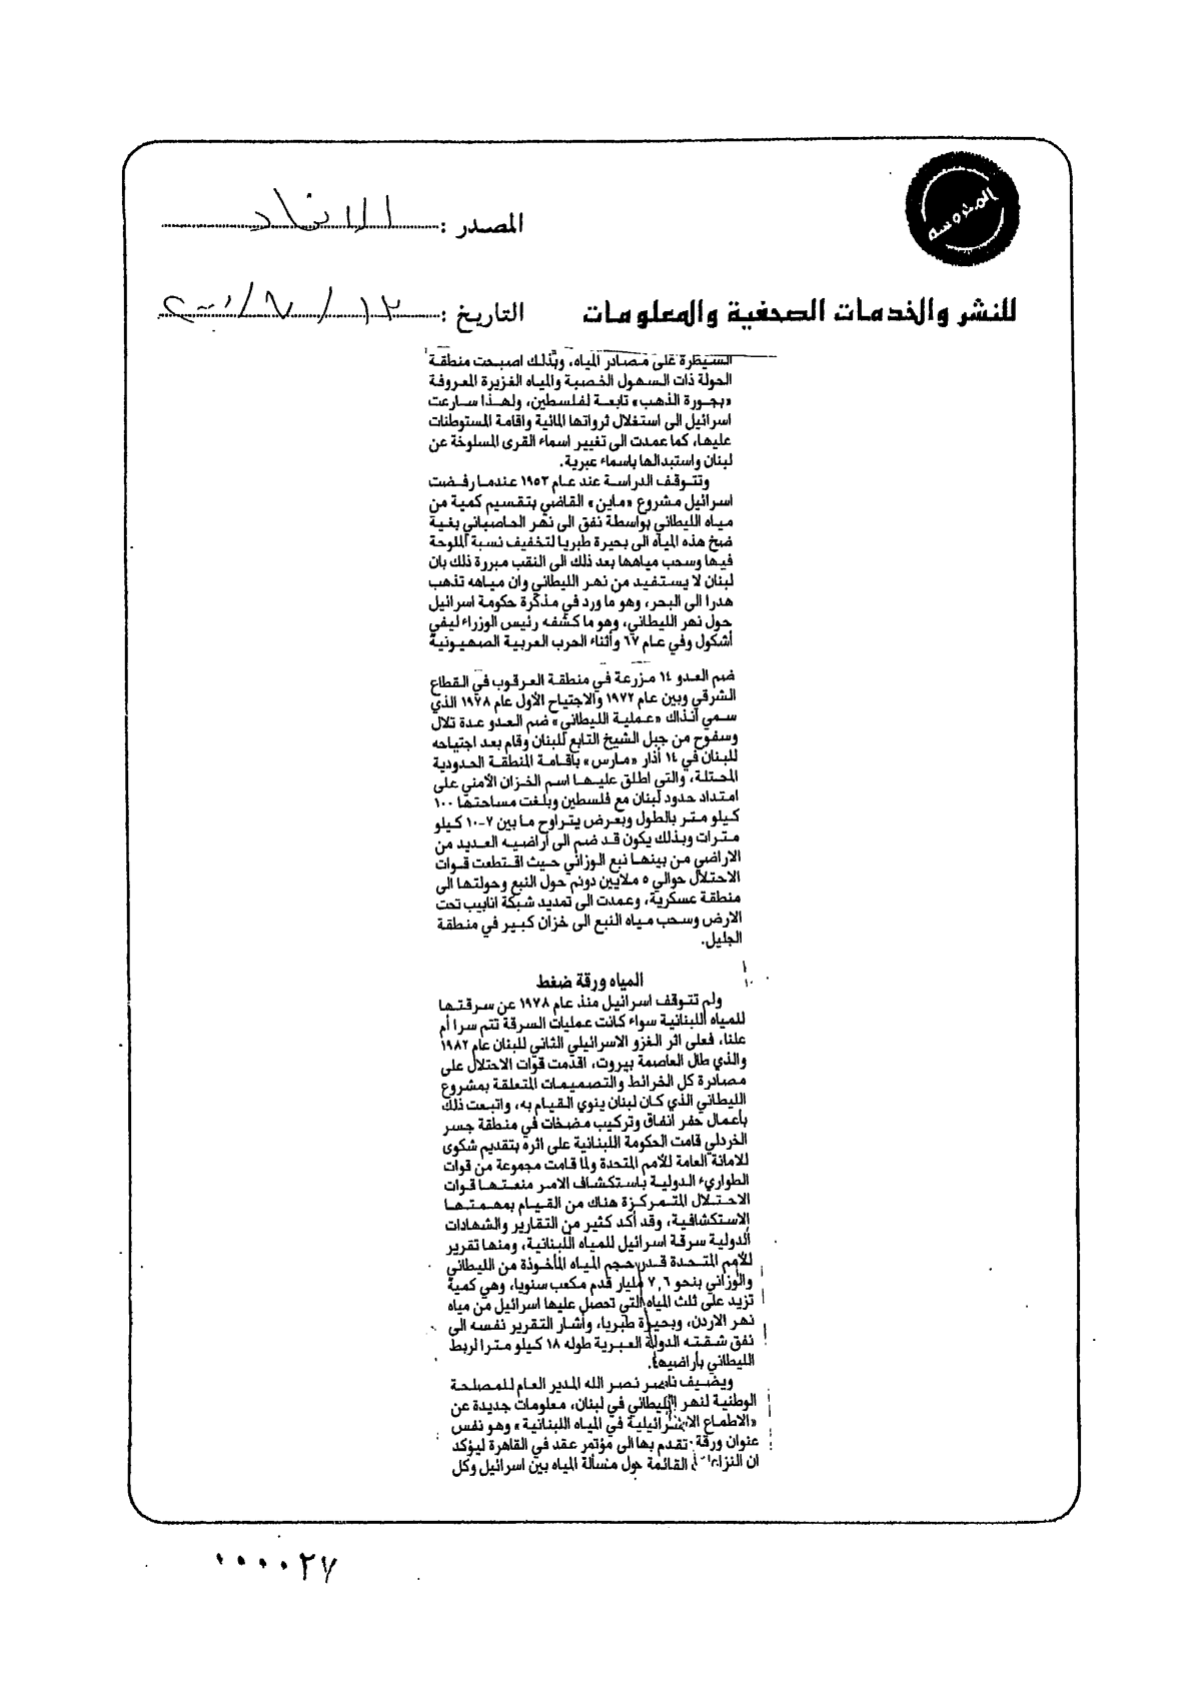 المحروسة
المصدر : الاتحاد
للنشر والخدمات الصحفية والمعلومات
التاريخ : ١٢ / ٧ / ٢٠٠١
السيطرة على مصادر المياه، وبذلك اصبحت منطقة
الحولة ذات السهول الخصبة والمياه الغزيرة المعروفة
«بجورة الذهب» تابعة لفلسطين، ولهذا سارعت
اسرائيل الى استغلال ثرواتها المائية واقامة المستوطنات
عليها، كما عمدت الى تغيير اسماء القرى المسلوخة عن
لبنان واستبدالها باسماء عبرية.
وتتوقف الدراسة عند عام ١٩٥٣ عندما رفضت
اسرائيل مشروع «ماين» القاضي بتقسيم كمية من
مياه الليطاني بواسطة نفق الى نهر الحاصباني بغية
ضخ هذه المياه الى بحيرة طبريا لتخفيف نسبة الملوحة
فيها وسحب مياهها بعد ذلك الى النقب مبررة ذلك بان
لبنان لا يستفيد من نهر الليطاني وان مياهه تذهب
هدرا الى البحر، وهو ما ورد في مذكرة حكومة اسرائيل
حول نهر الليطاني، وهو ما كشفه رئيس الوزراء ليفي
أشكول وفي عام ٦٧ وأثناء الحرب العربية الصهيونية
ضم العدو ١٤ مزرعة في منطقة العرقوب في القطاع
الشرقي وبين عام ١٩٧٢ والاجتياح الأول عام ١٩٧٨ الذي
سمي آنذاك «عملية الليطاني» ضم العدو عدة تلال
وسفوح من جبل الشيخ التابع للبنان وقام بعد اجتياحه
للبنان في ١٤ آذار «مارس» باقامة المنطقة الحدودية
المحتلة، والتي اطلق عليها اسم الخزان الأمني على
امتداد حدود لبنان مع فلسطين وبلغت مساحتها ١٠٠
كيلو متر بالطول وبعرض يتراوح ما بين ٧-١٠ كيلو
مترات وبذلك يكون قد ضم الى أراضيه العديد من
الاراضي من بينها نبع الوزاني حيث اقتطعت قوات
الاحتلال حوالي ٥ ملايين دونم حول النبع وحولتها الى
منطقة عسكرية، وعمدت الى تمديد شبكة انابيب تحت
الارض وسحب مياه النبع الى خزان كبير في منطقة
الجليل.
المياه ورقة ضغط
ولم تتوقف اسرائيل منذ عام ١٩٧٨ عن سرقتها
للمياه اللبنانية سواء كانت عمليات السرقة تتم سرا أم
علنا، فعلى اثر الغزو الاسرائيلي الثاني للبنان عام ١٩٨٢
والذي طال العاصمة بيروت، اقدمت قوات الاحتلال على
مصادرة كل الخرائط والتصميمات المتعلقة بمشروع
الليطاني الذي كان لبنان ينوي القيام به، واتبعت ذلك
بأعمال حفر انفاق وتركيب مضخات في منطقة جسر
الخردلي قامت الحكومة اللبنانية على اثره بتقديم شكوى
للامانة العامة للأمم المتحدة ولما قامت مجموعة من قوات
الطواريء الدولية باستكشاف الامر منعتها قوات
الاحتلال المتمركزة هناك من القيام بمهمتها
الاستكشافية، وقد أكد كثير من التقارير والشهادات
الدولية سرقة اسرائيل للمياه اللبنانية، ومنها تقرير
للأمم المتحدة قدر حجم المياه المأخوذة من الليطاني
والوزاني بنحو ٧,٦ مليار قدم مكعب سنويا، وهي كمية
تزيد على ثلث المياه التي تحصل عليها اسرائيل من مياه
نهر الاردن، وبحيرة طبريا، وأشار التقرير نفسه الى
نفق شقته الدولة العبرية طوله ١٨ كيلو مترا لربط
الليطاني بأراضيها.
ويضيف ناصر نصر الله المدير العام للمصلحة
الوطنية لنهر الليطاني في لبنان، معلومات جديدة عن
«الاطماع الاسرائيلية في المياه اللبنانية» وهو نفس
عنوان ورقة تقدم بها الى مؤتمر عقد في القاهرة ليؤكد
ان النزاعات القائمة حول مسألة المياه بين اسرائيل وكل
١٠٠٠٠٢٧